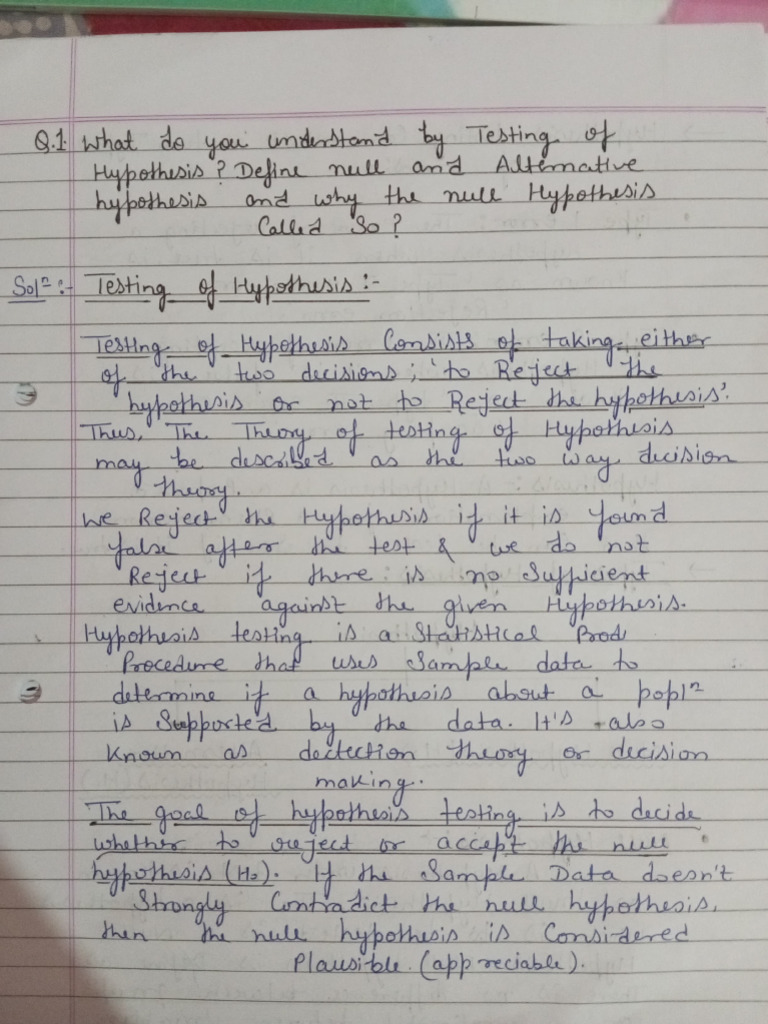 Q.1. What do you understand by Testing of
Hypothesis? Define null and Alternative
hypothesis and why the null Hypothesis
Called So?
Solⁿ :- Testing of Hypothesis :-
Testing of Hypothesis Consists of taking either
of the two decisions; 'to Reject the
hypothesis or not to Reject the hypothesis'.
Thus, The Theory of testing of Hypothesis
may be described as the two way decision
theory.
We Reject the Hypothesis if it is found
false after the test & we do not
Reject if there is no Sufficient
evidence against the given Hypothesis.
Hypothesis testing is a Statistical Prod
Procedure that uses Sample data to
determine if a hypothesis about a poplⁿ
is Supported by the data. It's also
Known as dectection theory or decision
making.
The goal of hypothesis testing is to decide
whether to reject or accept the null
hypothesis (H₀). If the Sample Data doesn't
Strongly Contradict the null hypothesis,
then the null hypothesis is Considered
Plausible. (appreciable).